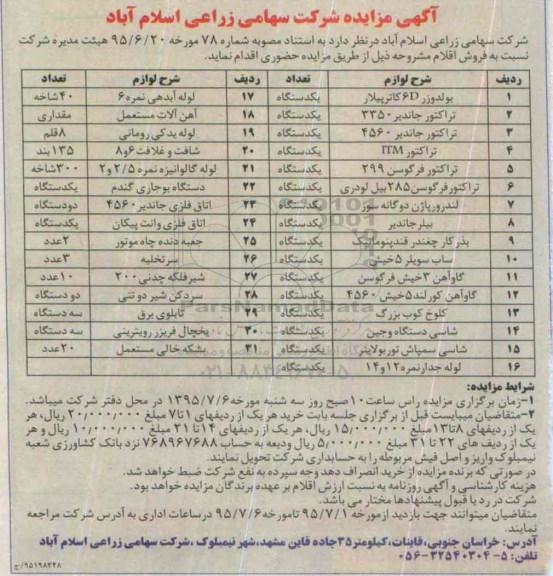 آگهی مزایده شرکت سهامی زراعی اسلام آباد
شرکت سهامی زراعی اسلام آباد درنظر دارد به استناد مصوبه شماره ۷۸ مورخه ۹۵/۶/۲۰ هیئت مدیره شرکت
نسبت به فروش اقلام مشروحه ذیل از طریق مزایده حضوری اقدام نماید.
ردیف شرح لوازم تعداد ردیف شرح لوازم تعداد
۱ بولدوزر 6D کاترپیلار یکدستگاه ۱۷ لوله آبدهی نمره۶ ۴۰شاخه
۲ تراکتور جاندیر۳۳۵۰ یکدستگاه ۱۸ آهن آلات مستعمل مقداری
۳ تراکتور جاندیر ۴۵۶۰ یکدستگاه ۱۹ لوله یدکی رومانی ۸قلم
۴ تراکتور ITM یکدستگاه ۲۰ شافت و غلافت۶و۸ ۱۳۵بند
۵ تراکتور فرگوسن ۲۹۹ یکدستگاه ۲۱ لوله گالوانیزه نمره ۲/۵و۲ ۳۰۰شاخه
۶ تراکتورفرگوسن۲۸۵بیل لودری یکدستگاه ۲۲ دستگاه بوجاری گندم یکدستگاه
۷ لندرورپاژن دوگانه سوز یکدستگاه ۲۳ اتاق فلزی جاندیر۴۵۶۰ دودستگاه
۸ بیلر جاندیر یکدستگاه ۲۴ اتاق فلزی وانت پیکان یکدستگاه
۹ بذرکار چغندر قندپنوماتیک یکدستگاه ۲۵ جعبه دنده چاه موتور ۲عدد
۱۰ ساب سویلر ۵خیش یکدستگاه ۲۶ سرتخلیه ۳عدد
۱۱ گاوآهن ۳خیش فرگوسن یکدستگاه ۲۷ شیرفلکه چدنی۲۰۰ ۱۰عدد
۱۲ گاوآهن کورلند۵خیش ۴۵۶۰ یکدستگاه ۲۸ سردکن شیر دو تنی دو دستگاه
۱۳ کلوخ کوب بزرگ یکدستگاه ۲۹ تابلوی برق سه دستگاه
۱۴ شاسی دستگاه وجین یکدستگاه ۳۰ یخچال فریزر ویترینی سه دستگاه
۱۵ شاسی سمپاش توربولاینر یکدستگاه ۳۱ بشکه خالی مستعمل ۲۰عدد
۱۶ لوله جدارنمره۱۲و۱۴ یکدستگاه
شرایط مزایده:
۱-زمان برگزاری مزایده راس ساعت۱۰صبح روز سه شنبه مورخه۱۳۹۵/۷/۶ در محل دفتر شرکت میباشد.
۲-متقاضیان میبایست قبل از برگزاری جلسه بابت خرید هر یک از ردیفهای ۱تا۷ مبلغ ۲۰/۰۰۰/۰۰۰ ریال، هر
یک از ردیفهای ۸تا۱۳مبلغ ۱۵/۰۰۰/۰۰۰ ریال، هر یک از ردیفهای ۱۴تا ۲۱ مبلغ ۱۰/۰۰۰/۰۰۰ ریال و هر
یک از ردیف های ۲۲ تا ۳۱ مبلغ ۵/۰۰۰/۰۰۰ ریال ودیعه به حساب ۷۶۸۹۶۷۶۸۸ نزد بانک کشاورزی شعبه
نیمبلوک واریز و اصل فیش مربوطه را به حسابداری شرکت تحویل نمایند.
در صورتی که برنده مزایده از خرید انصراف دهد وجه سپرده به نفع شرکت ضبط خواهد شد.
هزینه کارشناسی و آگهی روزنامه به نسبت ارزش اقلام بر عهده برندگان مزایده خواهد بود.
شرکت در رد یا قبول پیشنهادها مختار می باشد.
متقاضیان میتوانند جهت بازدید ازمورخه ۹۵/۷/۱ تامورخه۹۵/۷/۶ درساعات اداری به آدرس شرکت مراجعه
نمایند.
آدرس: خراسان جنوبی،قاینات،کیلومتر۳۵جاده قاین مشهد،شهر نیمبلوک ،شرکت سهامی زراعی اسلام آباد
تلفن: ۵-۳۲۵۴۰۳۰۴-۰۵۶
۹۵۱۹۸۳۲۸/ج
ParsNamadData
۰۲۱-۸۸۳۴۹۶۷۰-۵